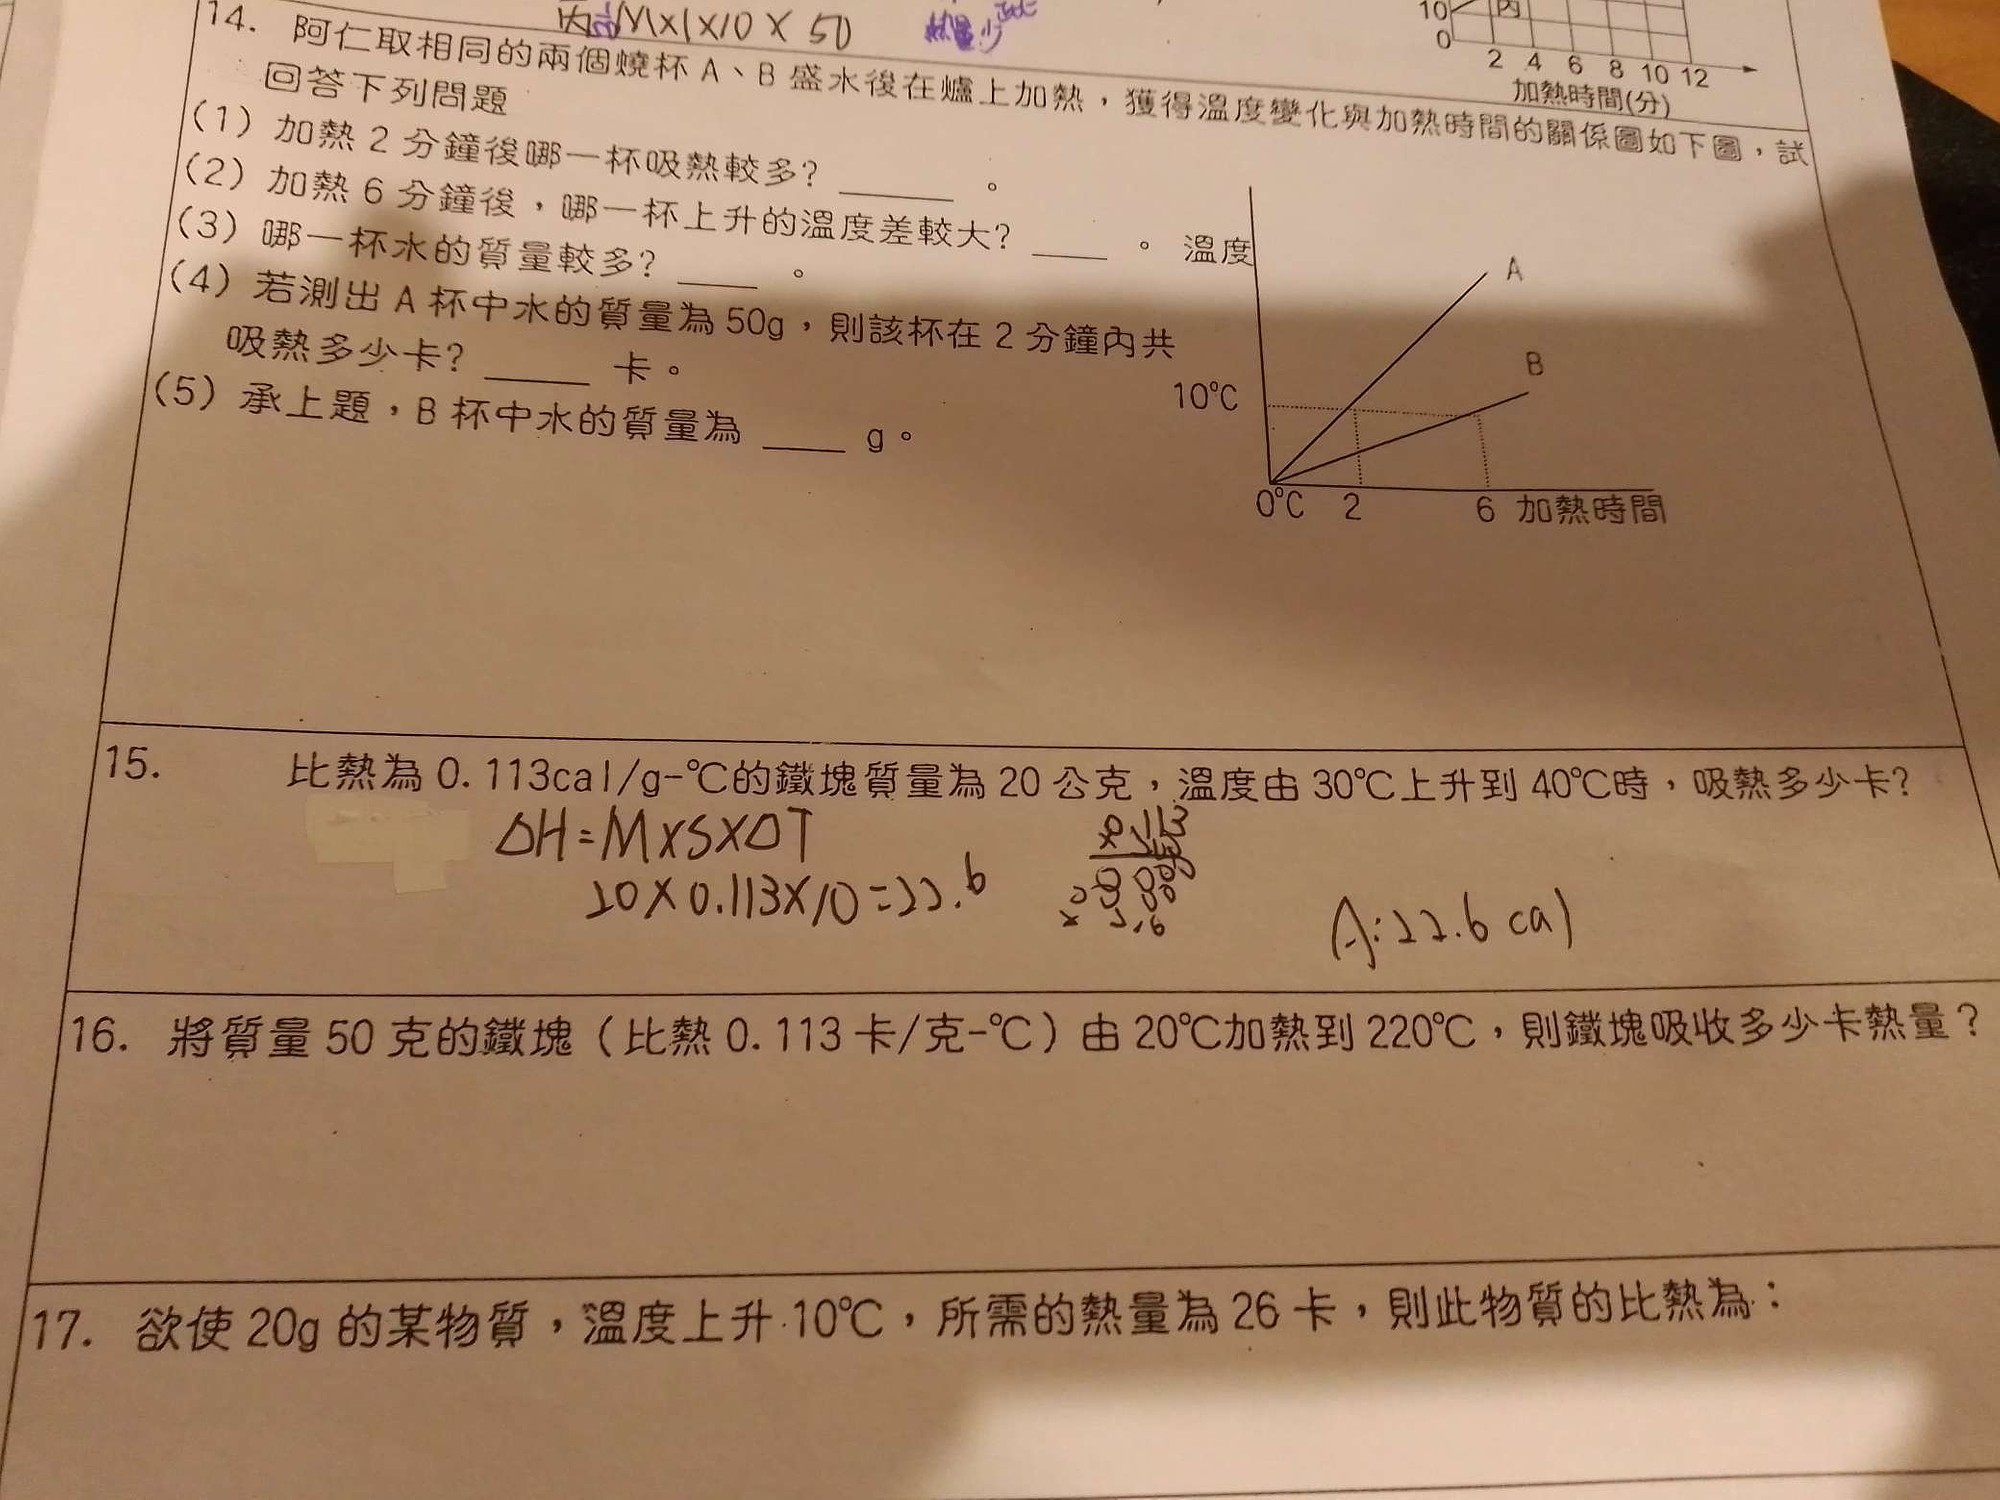 M×1×10×50
熱量少
10
丙
0
2 4 6 8 10 12
加熱時間(分)
14. 阿仁取相同的兩個燒杯 A、B 盛水後在爐上加熱，獲得溫度變化與加熱時間的關係圖如下圖，試
回答下列問題
(1) 加熱 2 分鐘後哪一杯吸熱較多? ______ 。
(2) 加熱 6 分鐘後，哪一杯上升的溫度差較大? ____ 。
(3) 哪一杯水的質量較多? ____ 。
(4) 若測出 A 杯中水的質量為 50g，則該杯在 2 分鐘內共
吸熱多少卡? _____ 卡。
(5) 承上題，B 杯中水的質量為 ____ g。
溫度
A
B
10℃
0℃ 2 6 加熱時間
15. 比熱為 0.113cal/g-℃的鐵塊質量為 20 公克，溫度由 30℃上升到 40℃時，吸熱多少卡?
ΔH=M×S×ΔT
20×0.113×10=22.6
A:22.6 cal
16. 將質量 50 克的鐵塊（比熱 0.113 卡/克-℃）由 20℃加熱到 220℃，則鐵塊吸收多少卡熱量？
17. 欲使 20g 的某物質，溫度上升 10℃，所需的熱量為 26 卡，則此物質的比熱為：